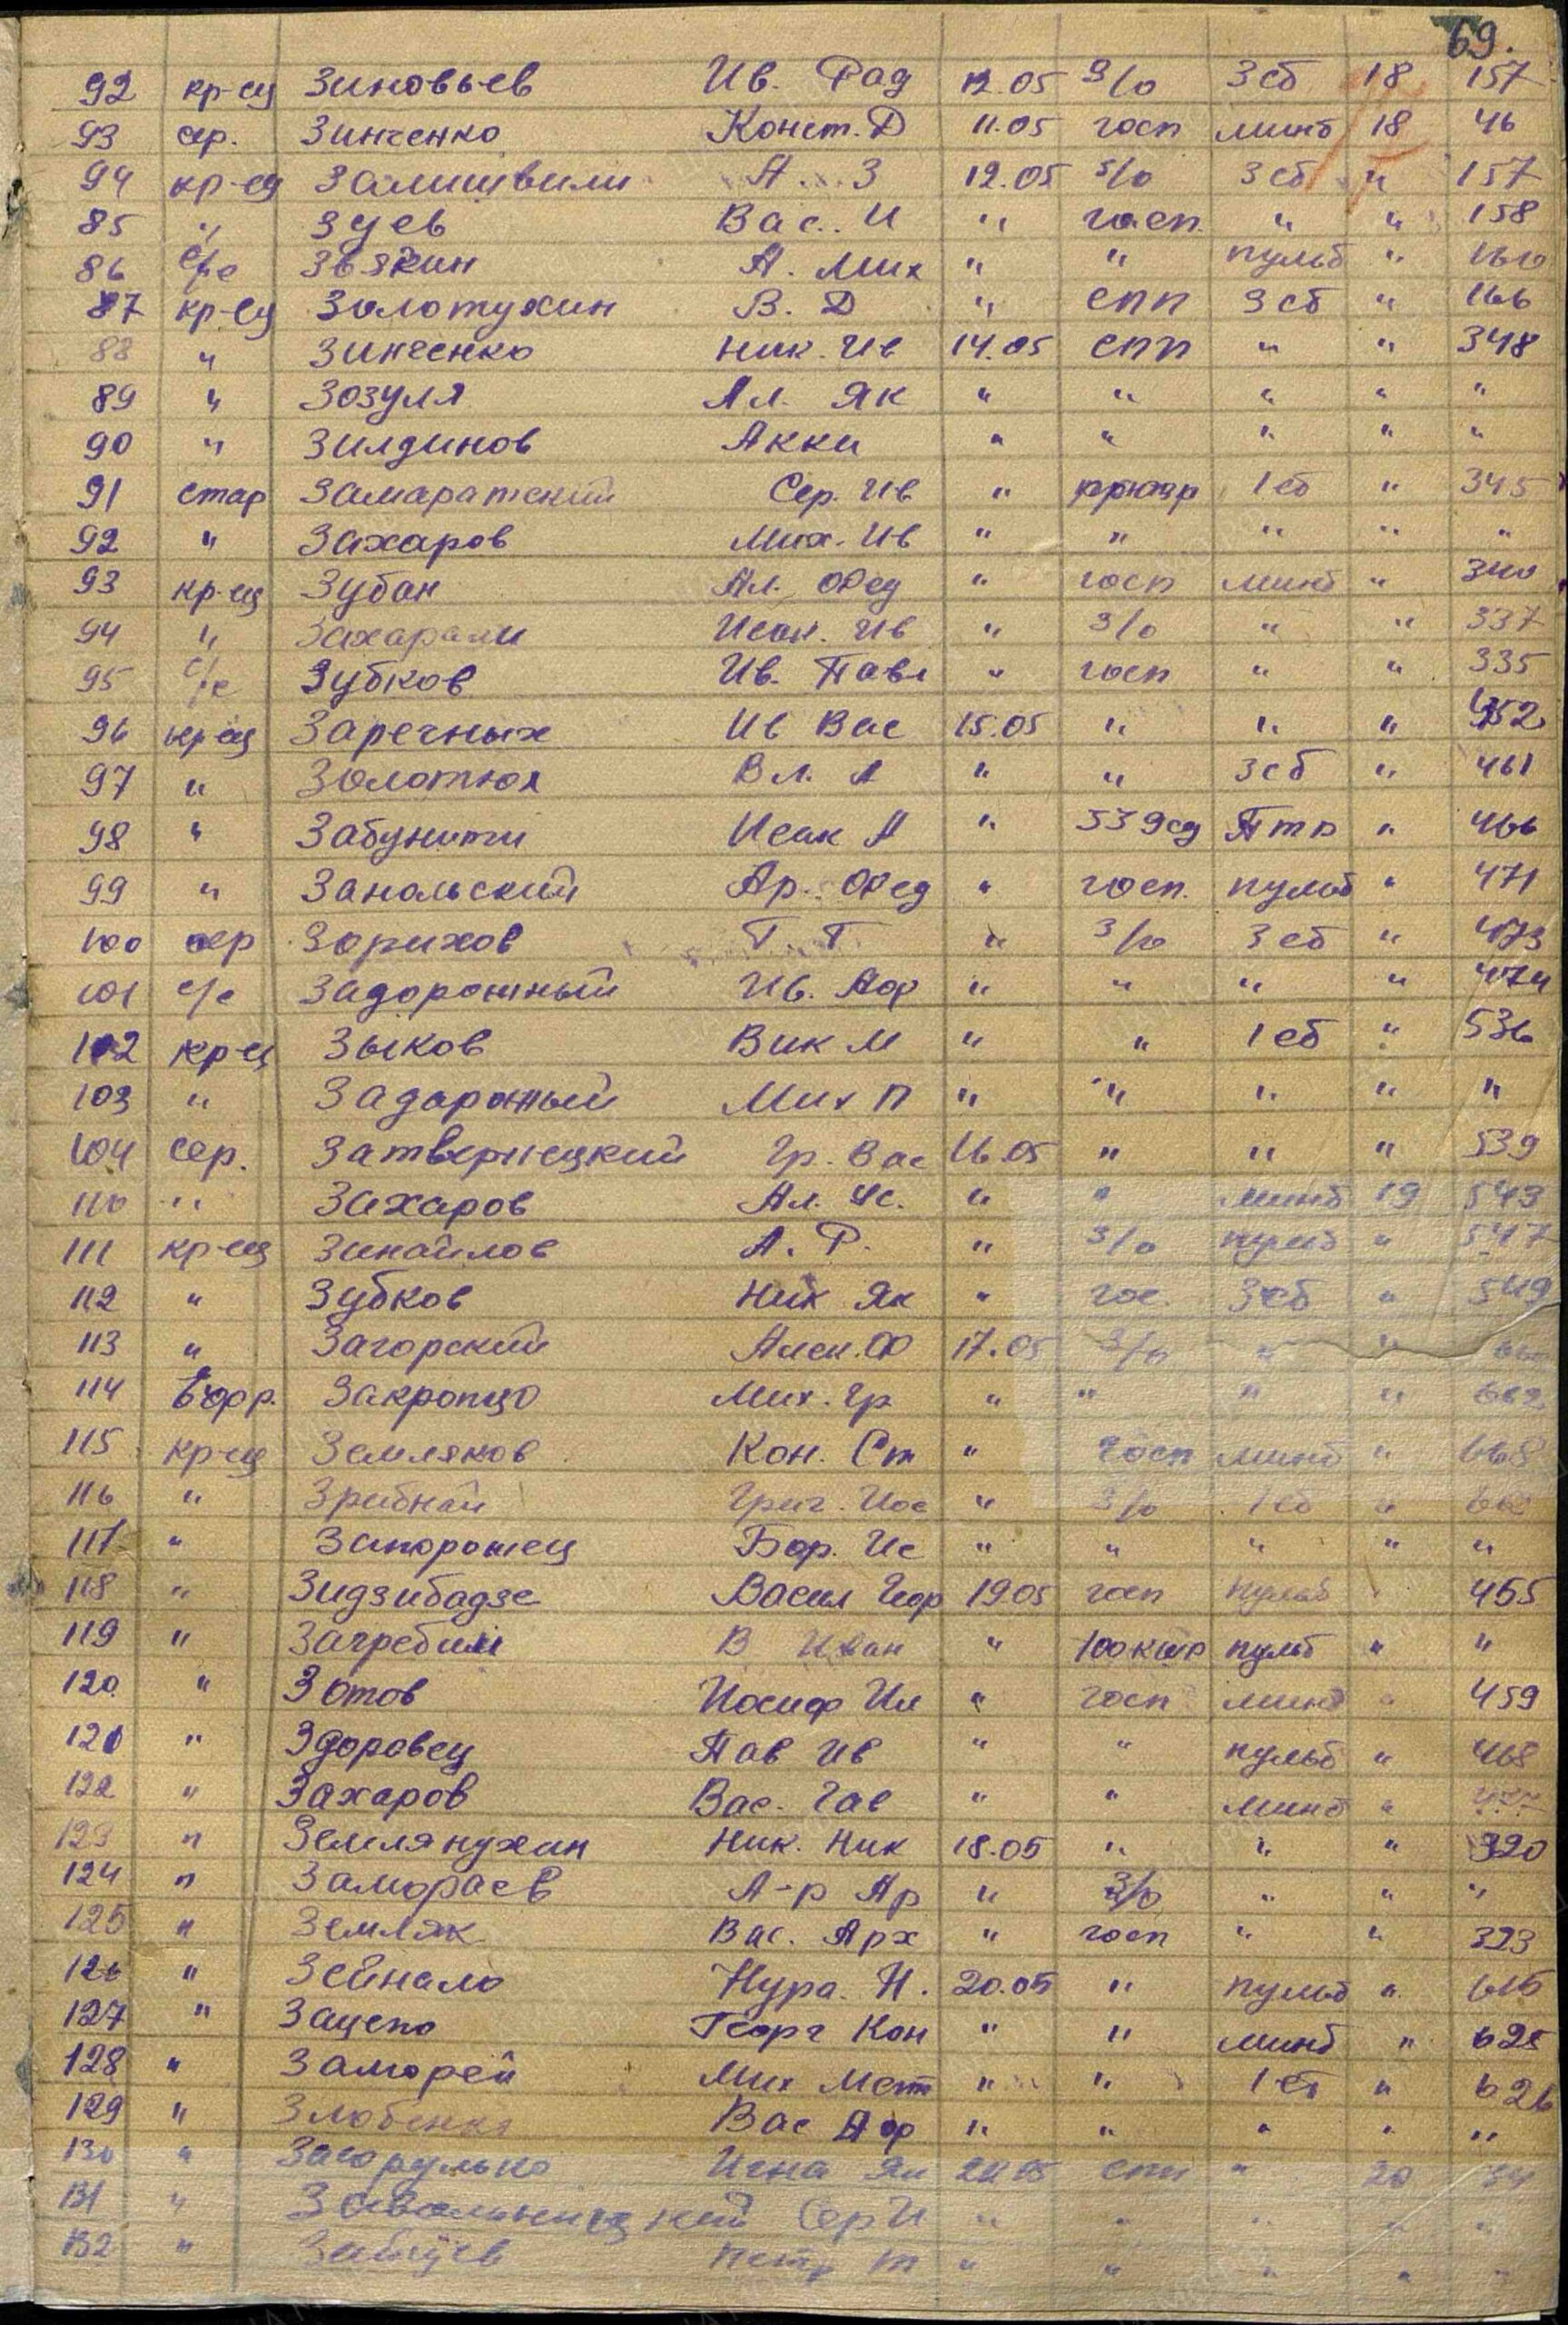 69.
92 кр-ец Зиновьев Ив. Рад 12.05 з/о 3 сб 18 157
93 сер. Зинченко Конст. Д 11.05 госп минб 18 46
94 кр-ец Залишвили А. З 12.05 з/о 3 сб " 157
85 " Зуев Вас. И " госп. " " 158
86 с/с Звякин А. Мих " " пульб " 160
87 кр-ец Золотухин В. Д " спп 3 сб " 166
88 " Зинченко Ник. Ив 14.05 спп " " 348
89 " Зозуля Ал. Як " " " " "
90 " Зилдинов Акки " " " " "
91 стар Замаратский Сер. Ив " 1 сб " 345
92 " Захаров Мих. Ив " " " " "
93 кр-ец Зубан Ал. Фед " госп минб " 340
94 " Ив " з/о " " 337
95 с/с Зубков Ив. Павл " госп " " 335
96 кр-ец Заречных Ив Вас 15.05 " " " 452
97 " Золотюк Вл. А " " 3 сб " 461
98 " Исак А " " 466
99 " Занольский Ар. Фед " госп. пульб " 471
100 сер Зорихов Т. Т " з/о 3 сб " 473
101 с/с Задорожный Ив. Аф " " " " 474
102 кр-ец Зыков Вик М " " 1 сб " 536
103 " Задорожный Мих П " " " " "
104 сер. Затвернецкий Гр. Вас 16.05 " " " 539
110 " Захаров Ал. Ис. " " минб 19 543
111 кр-ец Зинаилов А. Р. " з/о пульб " 547
112 " Зубков Ник Як " гос. 3 сб " 549
113 " Загорский Алек. Ф 17.05 з/о " "
114 Закропцо Мих. Гр " " " " 662
115 кр-ец Земляков Кон. Ст " госп минб " 668
116 " Григ. Иос " з/о 1 сб "
117 " Запорожец Бор. Ис " " " " "
118 " Зидзибадзе Васил Геор 19.05 госп пульб 455
119 " В Иван " пульб " "
120 " Зотов Иосиф Ил " госп минб " 459
121 " Здоровец Пав Ив " " пульб " 468
122 " Захаров Вас. Гав " " минб " 477
123 " Землянухин Ник. Ник 18.05 " " " 320
124 " Замораев А-р Ар " з/о " " "
125 " Земляк Вас. Арх " госп " " 323
126 " Зейнало Нура. Н. 20.05 " пульб " 615
127 " Зацепо Георг Кон " " минб " 625
128 " Заморей Мих " " 1 сб " 626
129 " Вас Аф " " " " "
130 " Загорулько Игна спп " 20
131 " Сер И " " " " "
132 " Петр " " " " "